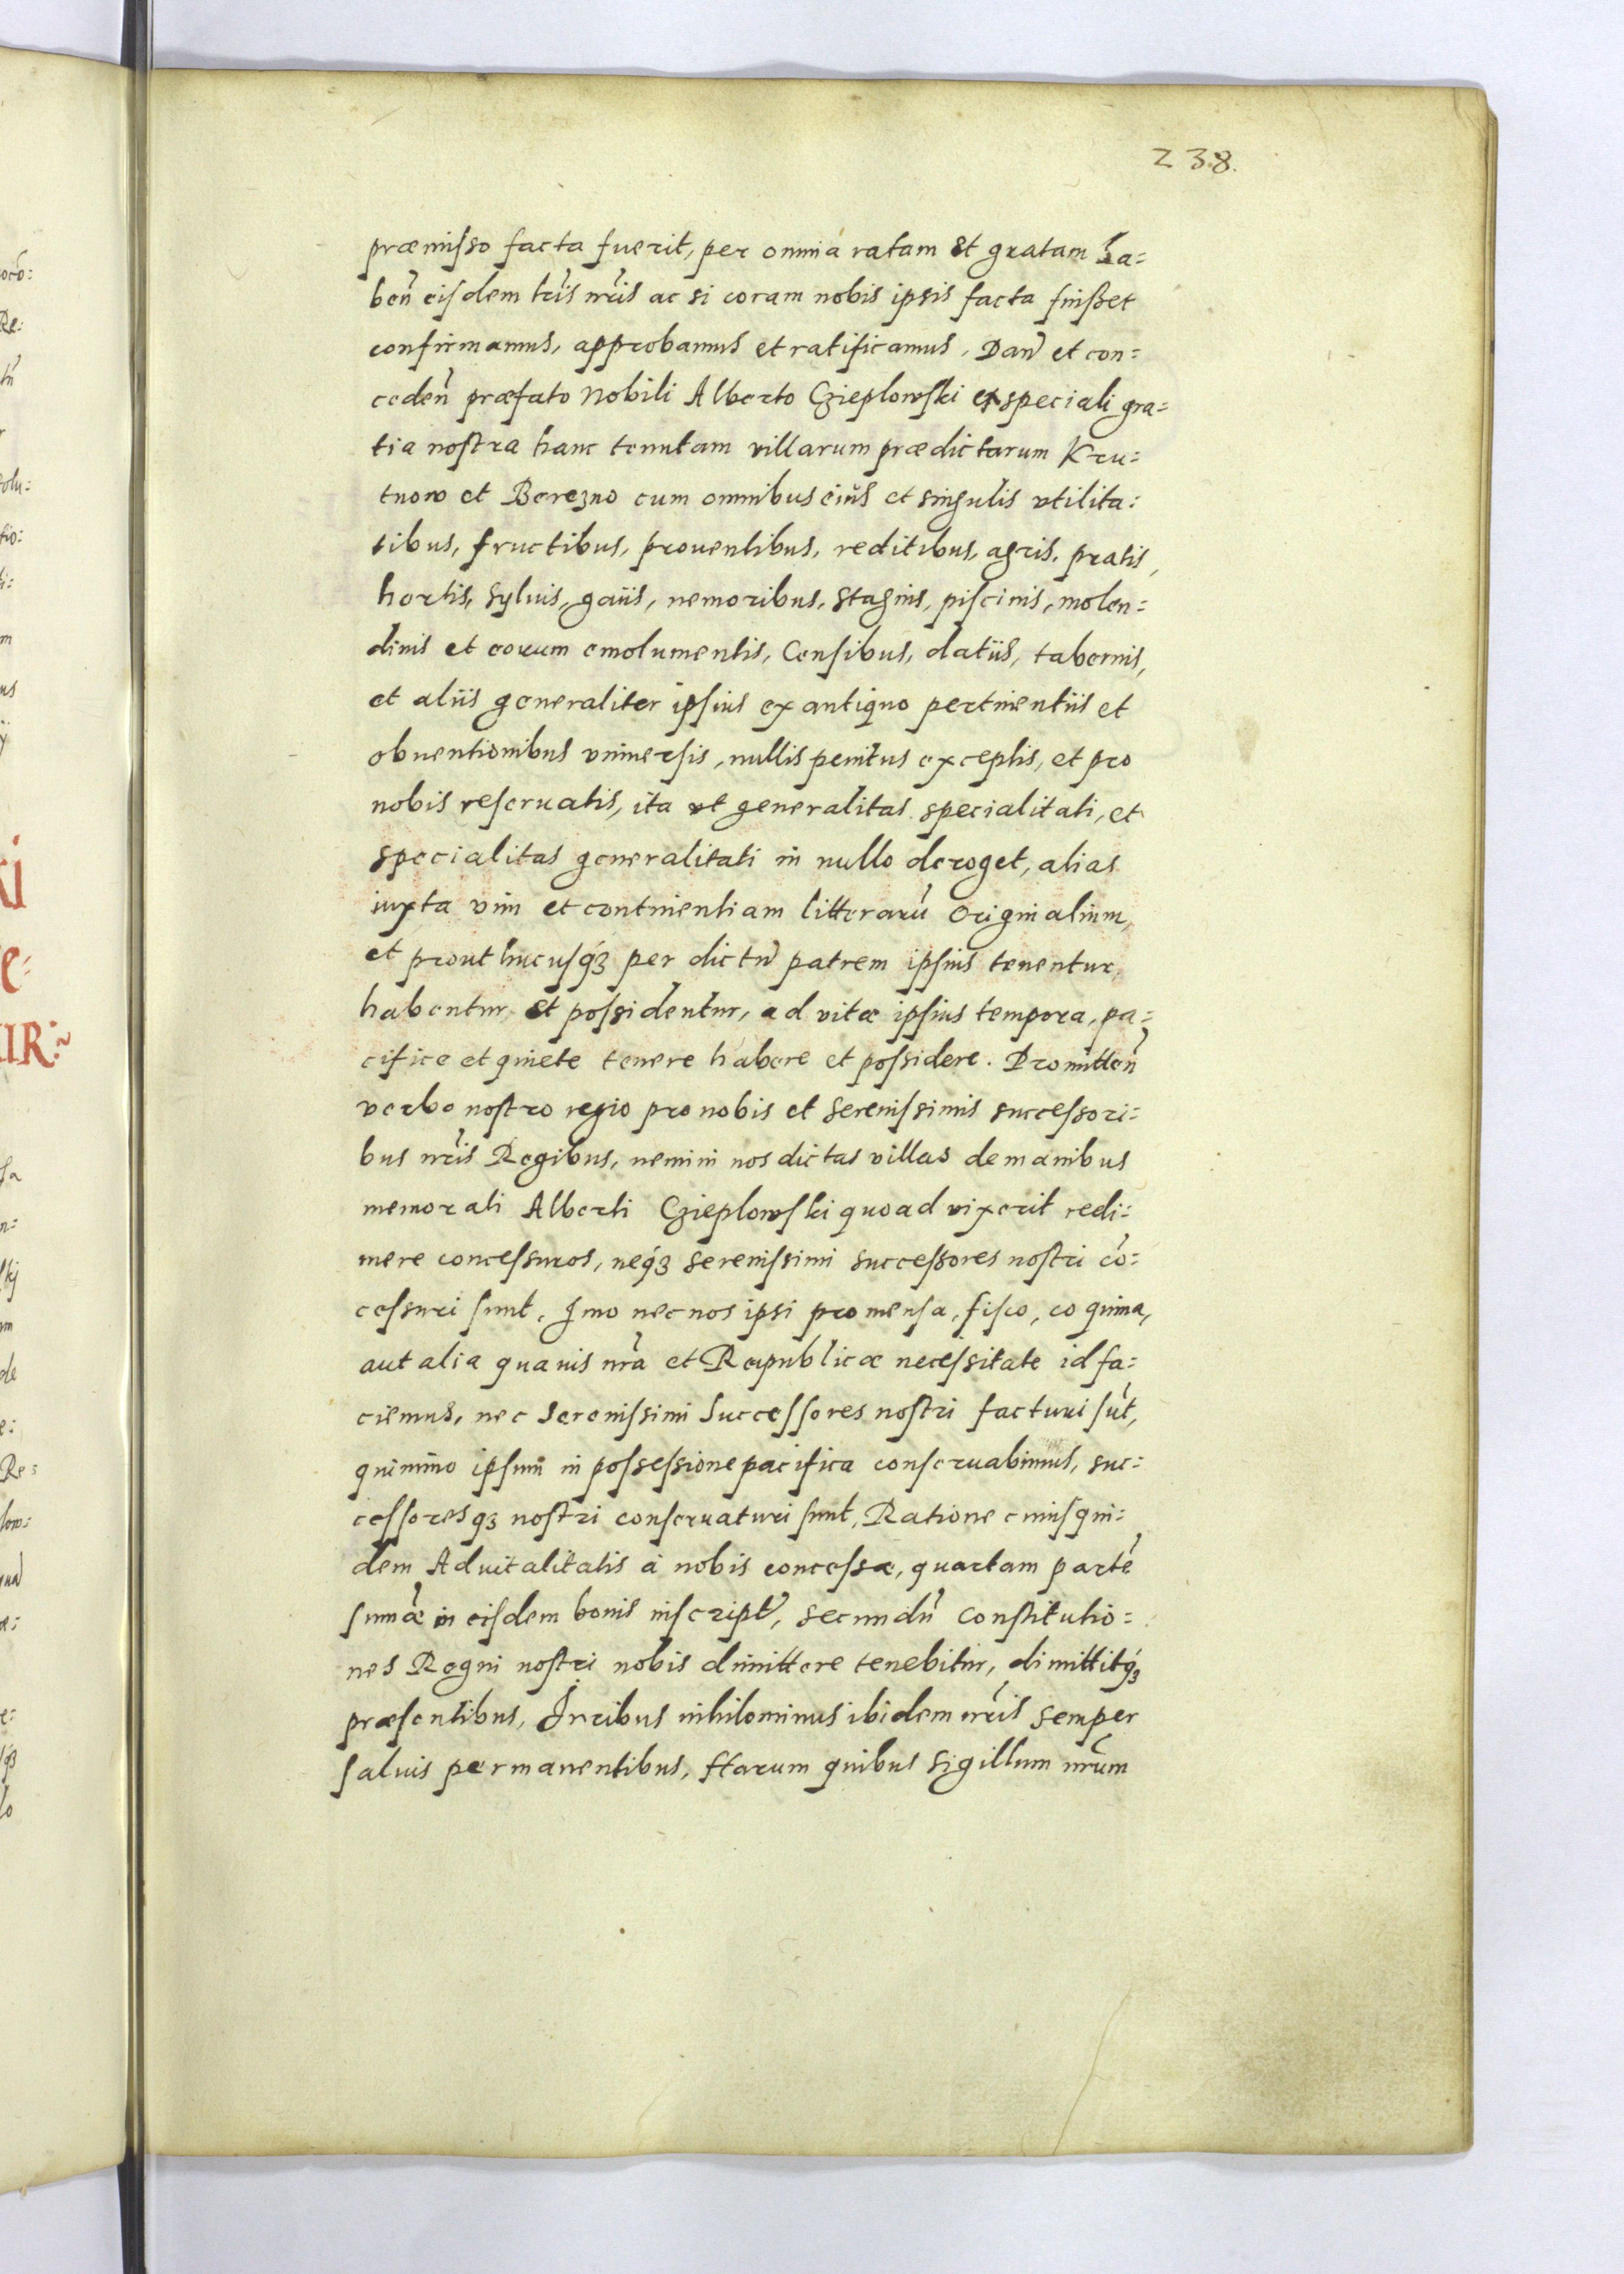 238.
præmisso facta fuerit, per omnia ratam et gratam ha=
ben̄ eisdem lr̃is nr̃is ac si coram nobis ipsis facta fuisset
confirmamus, approbamus et ratificamus, Dan̄ et con=
ceden̄ præfato Nobili Alberto Czieplowski ex speciali gra=
tia nostra hanc tenutam villarum prædictarum Kru=
tnow et Berezno cum omnibus eius et singulis vtilita=
tibus, fructibus, prouentibus, reditibus, agris, pratis,
hortis, syluis, gaiis, nemoribus, stagnis, piscinis, molen=
dinis et eorum emolumentis, Censibus, datiis, tabernis,
et aliis generaliter ipsius ex antiquo pertinentiis et
obuentionibus vniuersis, nullis penitus exceptis, et pro
nobis reseruatis, ita vt generalitas specialitati, et
specialitas generalitati in nullo deroget, alias
iuxta vim et continentiam litterarũ Originalium,
et prout hucusq́ȝ per dictũ patrem ipsius tenentur,
habentur et possidentur, ad vitæ ipsius tempora, pa=
cifice et quiete tenere habere et possidere. Promitten̄
verbo nostro regio pro nobis et serenissimis successori=
bus nr̃is Regibus, nemini nos dictas villas de manibus
memorati Alberti Czieplowski quoad vixerit redi=
mere concessuros, neq́ȝ serenissimi successores nostri cõ=
cessuri sunt. Imo nec nos ipsi pro mensa, fisco, coquina,
aut alia quauis nr̃a et Reipublicæ necessitate id fa=
ciemus, nec Serenissimi Successores nostri facturi sũt,
quinimo ipsum in possessione pacifica conseruabimus, suc=
cessoresqȝ nostri conseruaturi sunt, Ratione cuiusqui=
dem Aduitalitatis à nobis concessæ, quartam partẽ
sum̃æ in eisdem bonis inscriptæ, secundũ Constitutio=
nes Regni nostri nobis dimittere tenebitur, dimittitq́ȝ
præsentibus, Iuribus nihilominus ibidem nr̃is semper
saluis permanentibus, Harum quibus sigillum nr̃um